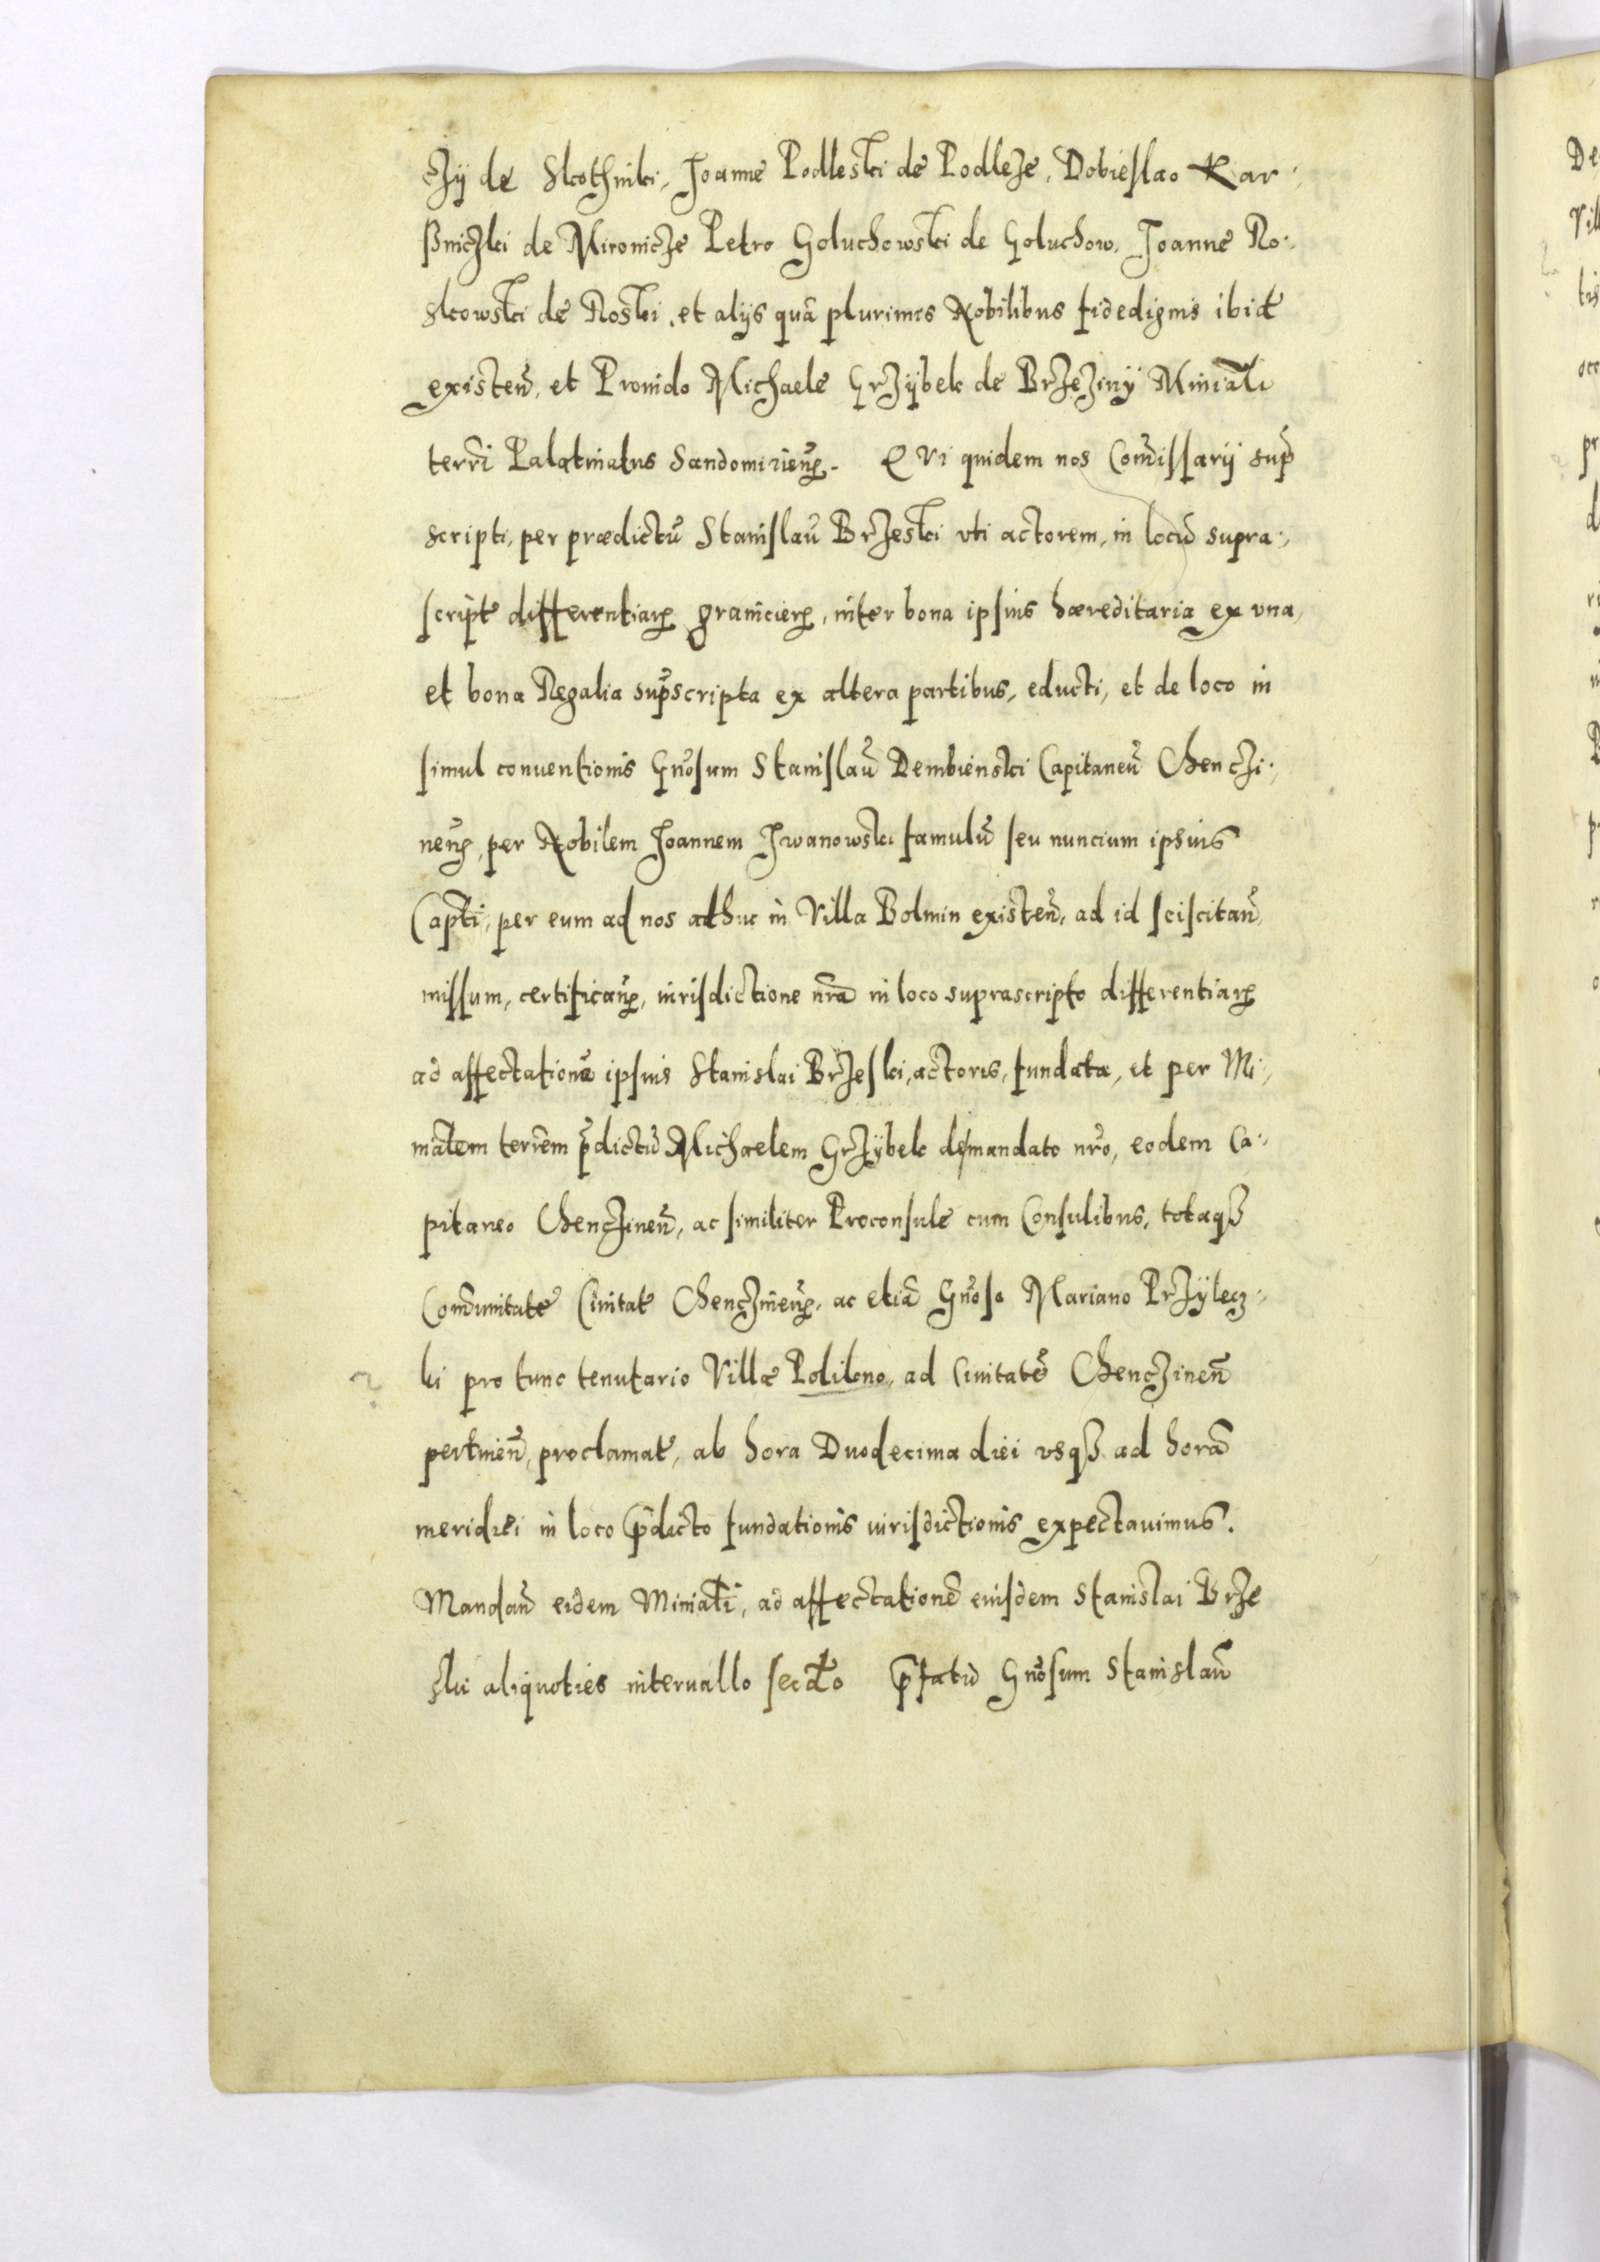 czÿ de Skothniki, Joanne Podleski de Podleze, Dobieslao Kar:,
ßniczki de Mironicze Petro Goluchowski de Goluchow, Joanne Ro:,
skowski de Roski, et alijs quã plurimis Nobilibus fidedignis ibid
existeñ, et Prouido Michaele Grzÿbek de Brzezinÿ Miniãli
terrĩ Palatinatus Sandomirieñ. Qui quidem nos Com̃issarij sup̃
scripti, per prædictũ Stanislaũ Brzeski vti actorem, in locũ supra:,
script differentiarꝝ granicierꝝ, inter bona ipsius hæreditaria ex vna,
et bona Regalia sup̃scripta ex altera partibus, educti, et de loco in
simul conuentionis Gñosum Stanislaũ Dembienski Capitaneũ Chenczi:,
neñ, per Nobilem Joannem Jwanowski famulũ seu nuncium ipsius
Capti, per eum ad nos adhuc in Villa Bolmin existeñ, ad id sciscitañ,
missum, certificañ, iurisdictione nr̃a in loco suprascripto differentiarꝝ
ad affectationẽ ipsius Stanislai Brzeski, actoris, fundata, et per Mi:,
niãlem terrẽm p̃dictũ Michaelem Grzÿbek de mandato nr̃o, eodem Ca:,
pitaneo Chenczineñ, ac similiter Proconsule cum Consulibus, totaqꝫ
Com̃unitate Ciuitat Chenczineñ, ac etiã Gñoso Mariano Przÿlecz:,
ki pro tunc tenutario Villæ Polikno, ad Ciuitatẽ Chenczineñ
pertineñ, proclamat, ab hora Duodecima diei vsqꝫ ad horã
meridiei in loco p̃dicto fundationis iurisdictionis expectauimus.
Mandañ eidem Miniãli, ad affectationẽ eiusdem Stanislai Brze
ski aliquoties interuallo facto p̃fatũ Gñosum Stanislaũ